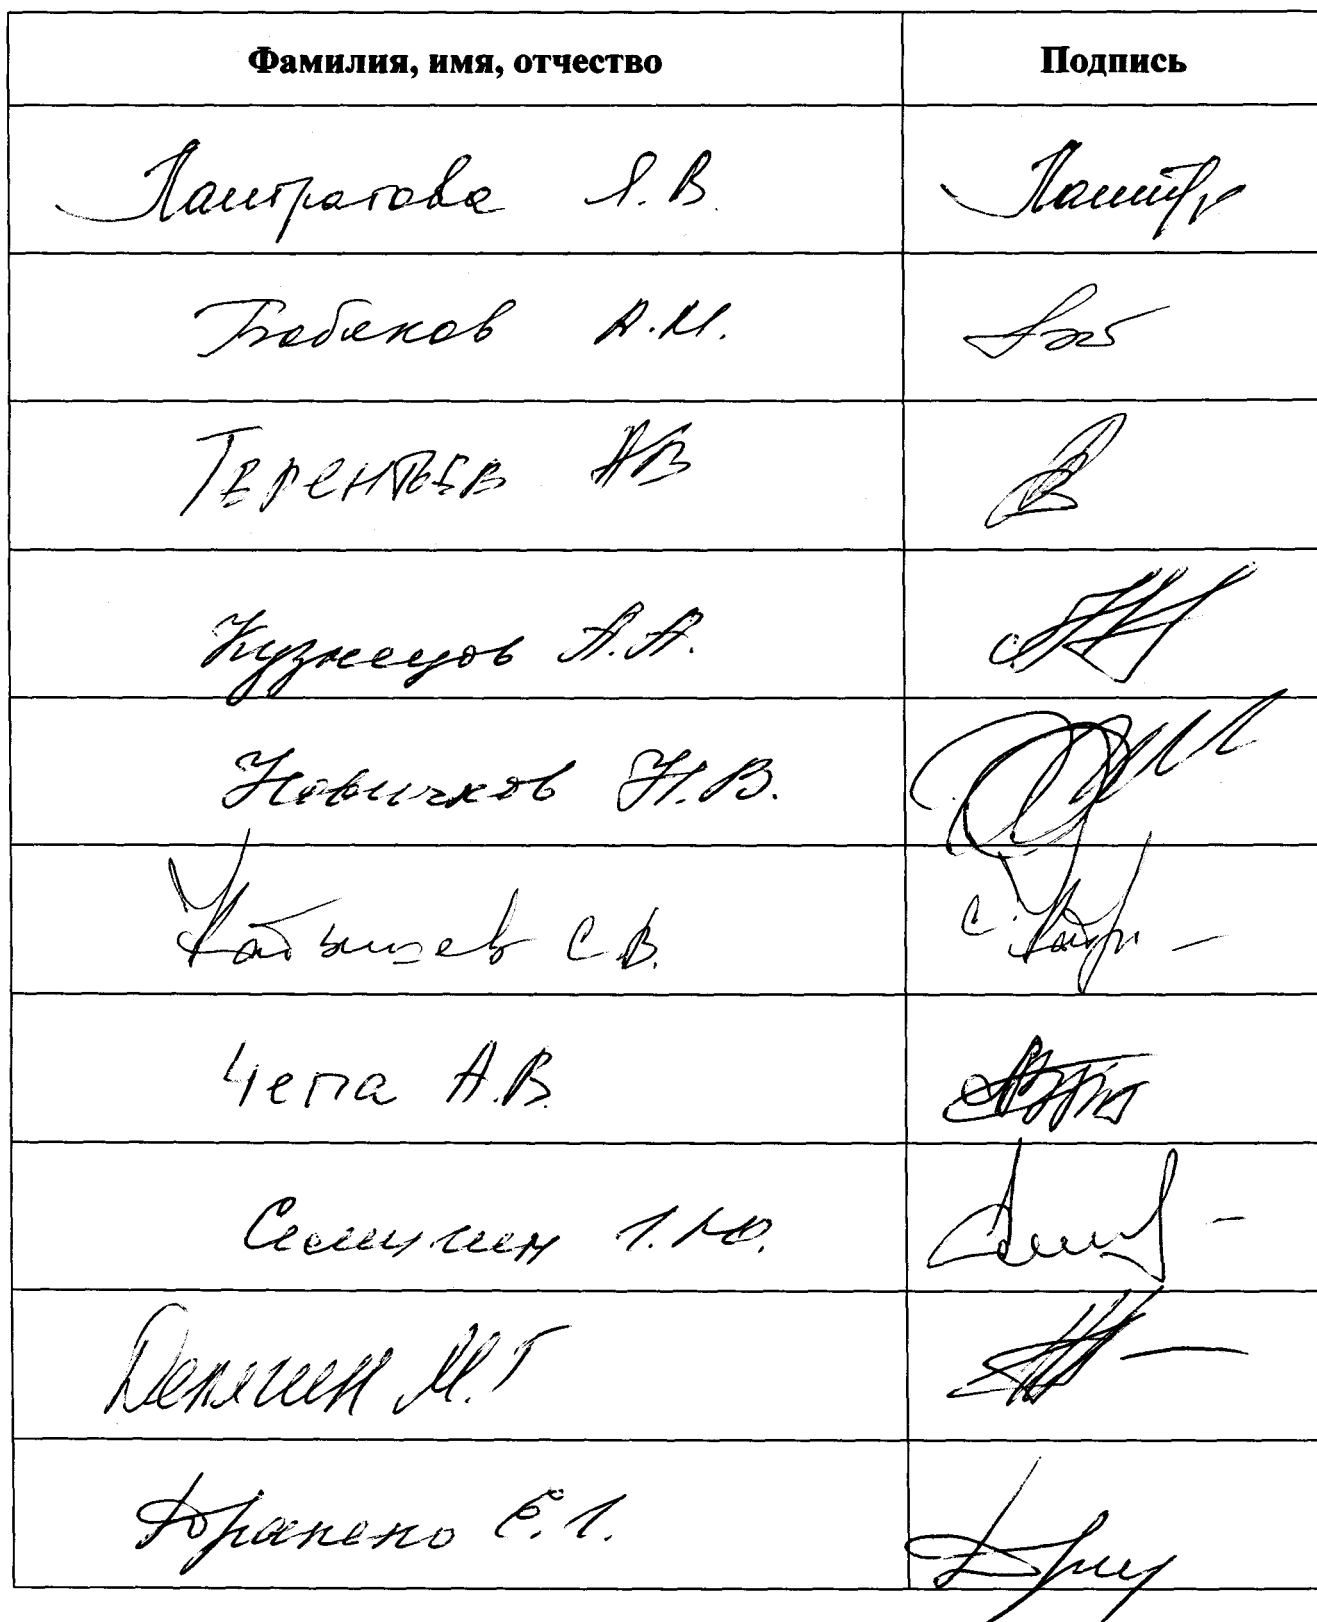 Фамилия, имя, отчество Подпись
Лантратова Я.В.
Бабаков А.М.
Терентьев АВ
Кузнецов А.А.
Новичков Н.В.
Кабышев С.В.
Чепа А.В.
Семигин Г.Ю.
Делягин М.Г
Драпеко Е.Г.